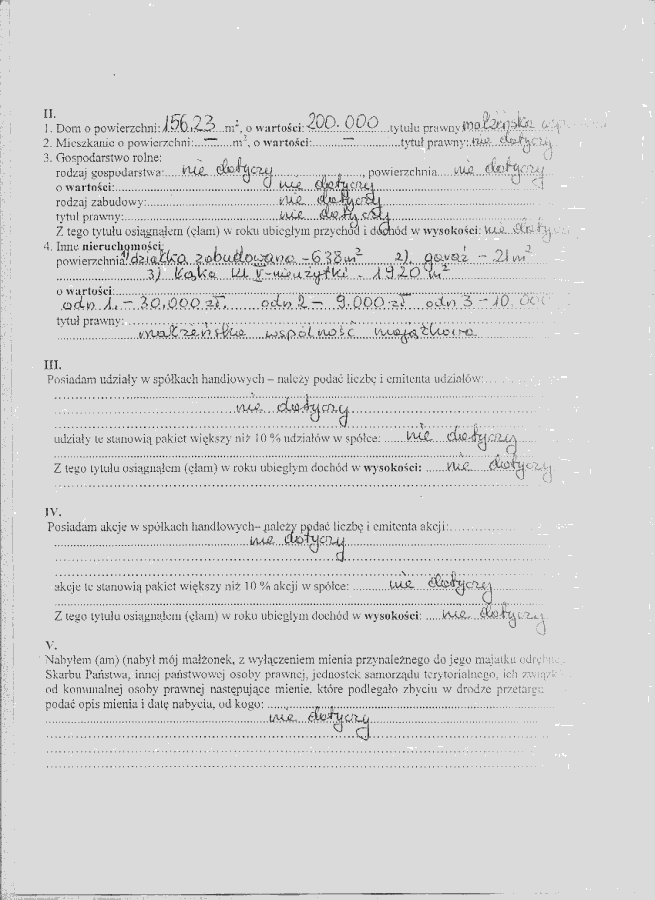 II.
1. Dom o powierzchni: 156,23 m², o wartości: 200.000 tytułu prawny małżeńska
2. Mieszkanie o powierzchni: — m², o wartości: — tytuł prawny: nie dotyczy
3. Gospodarstwo rolne:
rodzaj gospodarstwa: nie dotyczy, powierzchnia nie dotyczy
o wartości: nie dotyczy
rodzaj zabudowy: nie dotyczy
tytuł prawny: nie dotyczy
Z tego tytułu osiągnąłem (ęłam) w roku ubiegłym przychód i dochód w wysokości: nie
4. Inne nieruchomości:
powierzchnia: 1) działka zabudowana - 638 m² 2). garaż - 21 m²
3) łąka V-nieużytki - 1920 m²
o wartości:
odn 1. - 30.000 zł. odn 2 - 9.000 zł odn 3 - 10.000
tytuł prawny:
małżeńska wspólność majątkowa
III.
Posiadam udziały w spółkach handlowych – należy podać liczbę i emitenta udziałów:
nie dotyczy
udziały te stanowią pakiet większy niż 10 % udziałów w spółce: nie dotyczy
Z tego tytułu osiągnąłem (ęłam) w roku ubiegłym dochód w wysokości: nie dotyczy
IV.
Posiadam akcje w spółkach handlowych– należy podać liczbę i emitenta akcji:
nie dotyczy
akcje te stanowią pakiet większy niż 10 % akcji w spółce: nie dotyczy
Z tego tytułu osiągnąłem (ęłam) w roku ubiegłym dochód w wysokości: nie dotyczy
V.
Nabyłem (am) (nabył mój małżonek, z wyłączeniem mienia przynależnego do jego majątku
Skarbu Państwa, innej państwowej osoby prawnej, jednostek samorządu terytorialnego, ich
od komunalnej osoby prawnej następujące mienie, które podlegało zbyciu w drodze przetargu
podać opis mienia i datę nabycia, od kogo:
nie dotyczy